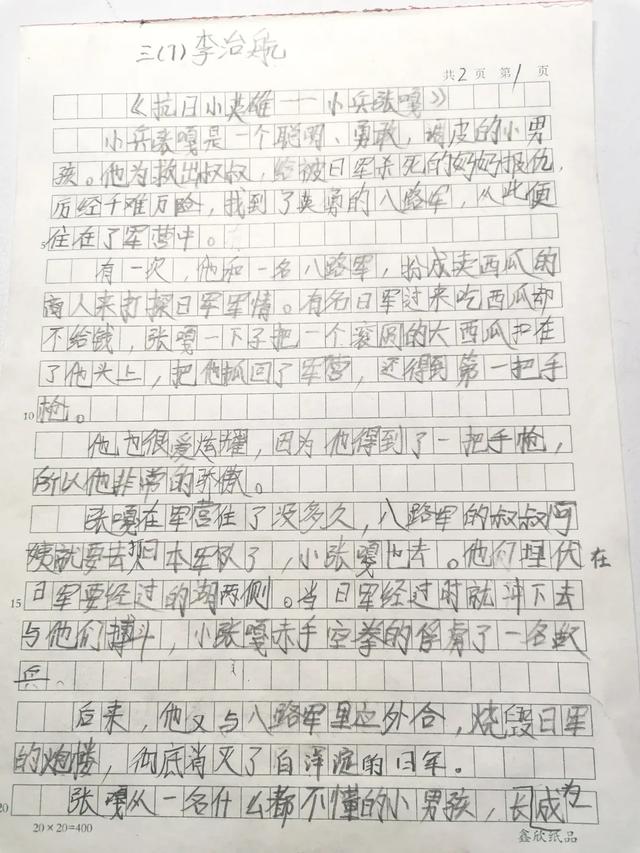 三(7)李治航
共2页 第1页
《抗日小英雄——小兵张嘎》
小兵张嘎是一个聪明、勇敢，调皮的小男
孩。他为救出叔叔，给被日军杀死的奶奶报仇，
历经千难万险，找到了英勇的八路军，从此便
5住在了军营中。
有一次，他和一名八路军，扮成卖西瓜的
商人来打探日军军情。有名日军过来吃西瓜却
不给钱，张嘎一下子把一个滚圆的大西瓜扣在
了他头上，把他抓回了军营，还得到第一把手
10枪。
他也很爱炫耀，因为他得到了一把手枪，
所以他非常的骄傲。
张嘎在军营住了没多久，八路军的叔叔阿
姨就要去打日本军队了，小张嘎也去。他们埋伏在
15日军要经过的湖两侧。当日军经过时就冲下去
与他们搏斗，小张嘎赤手空拳的俘虏了一名敌
兵。
后来，他又与八路军里应外合，烧毁日军
的炮楼，彻底消灭了白洋淀的日军。
20张嘎从一名什么都不懂的小男孩，长成为
20×20=400
鑫欣纸品